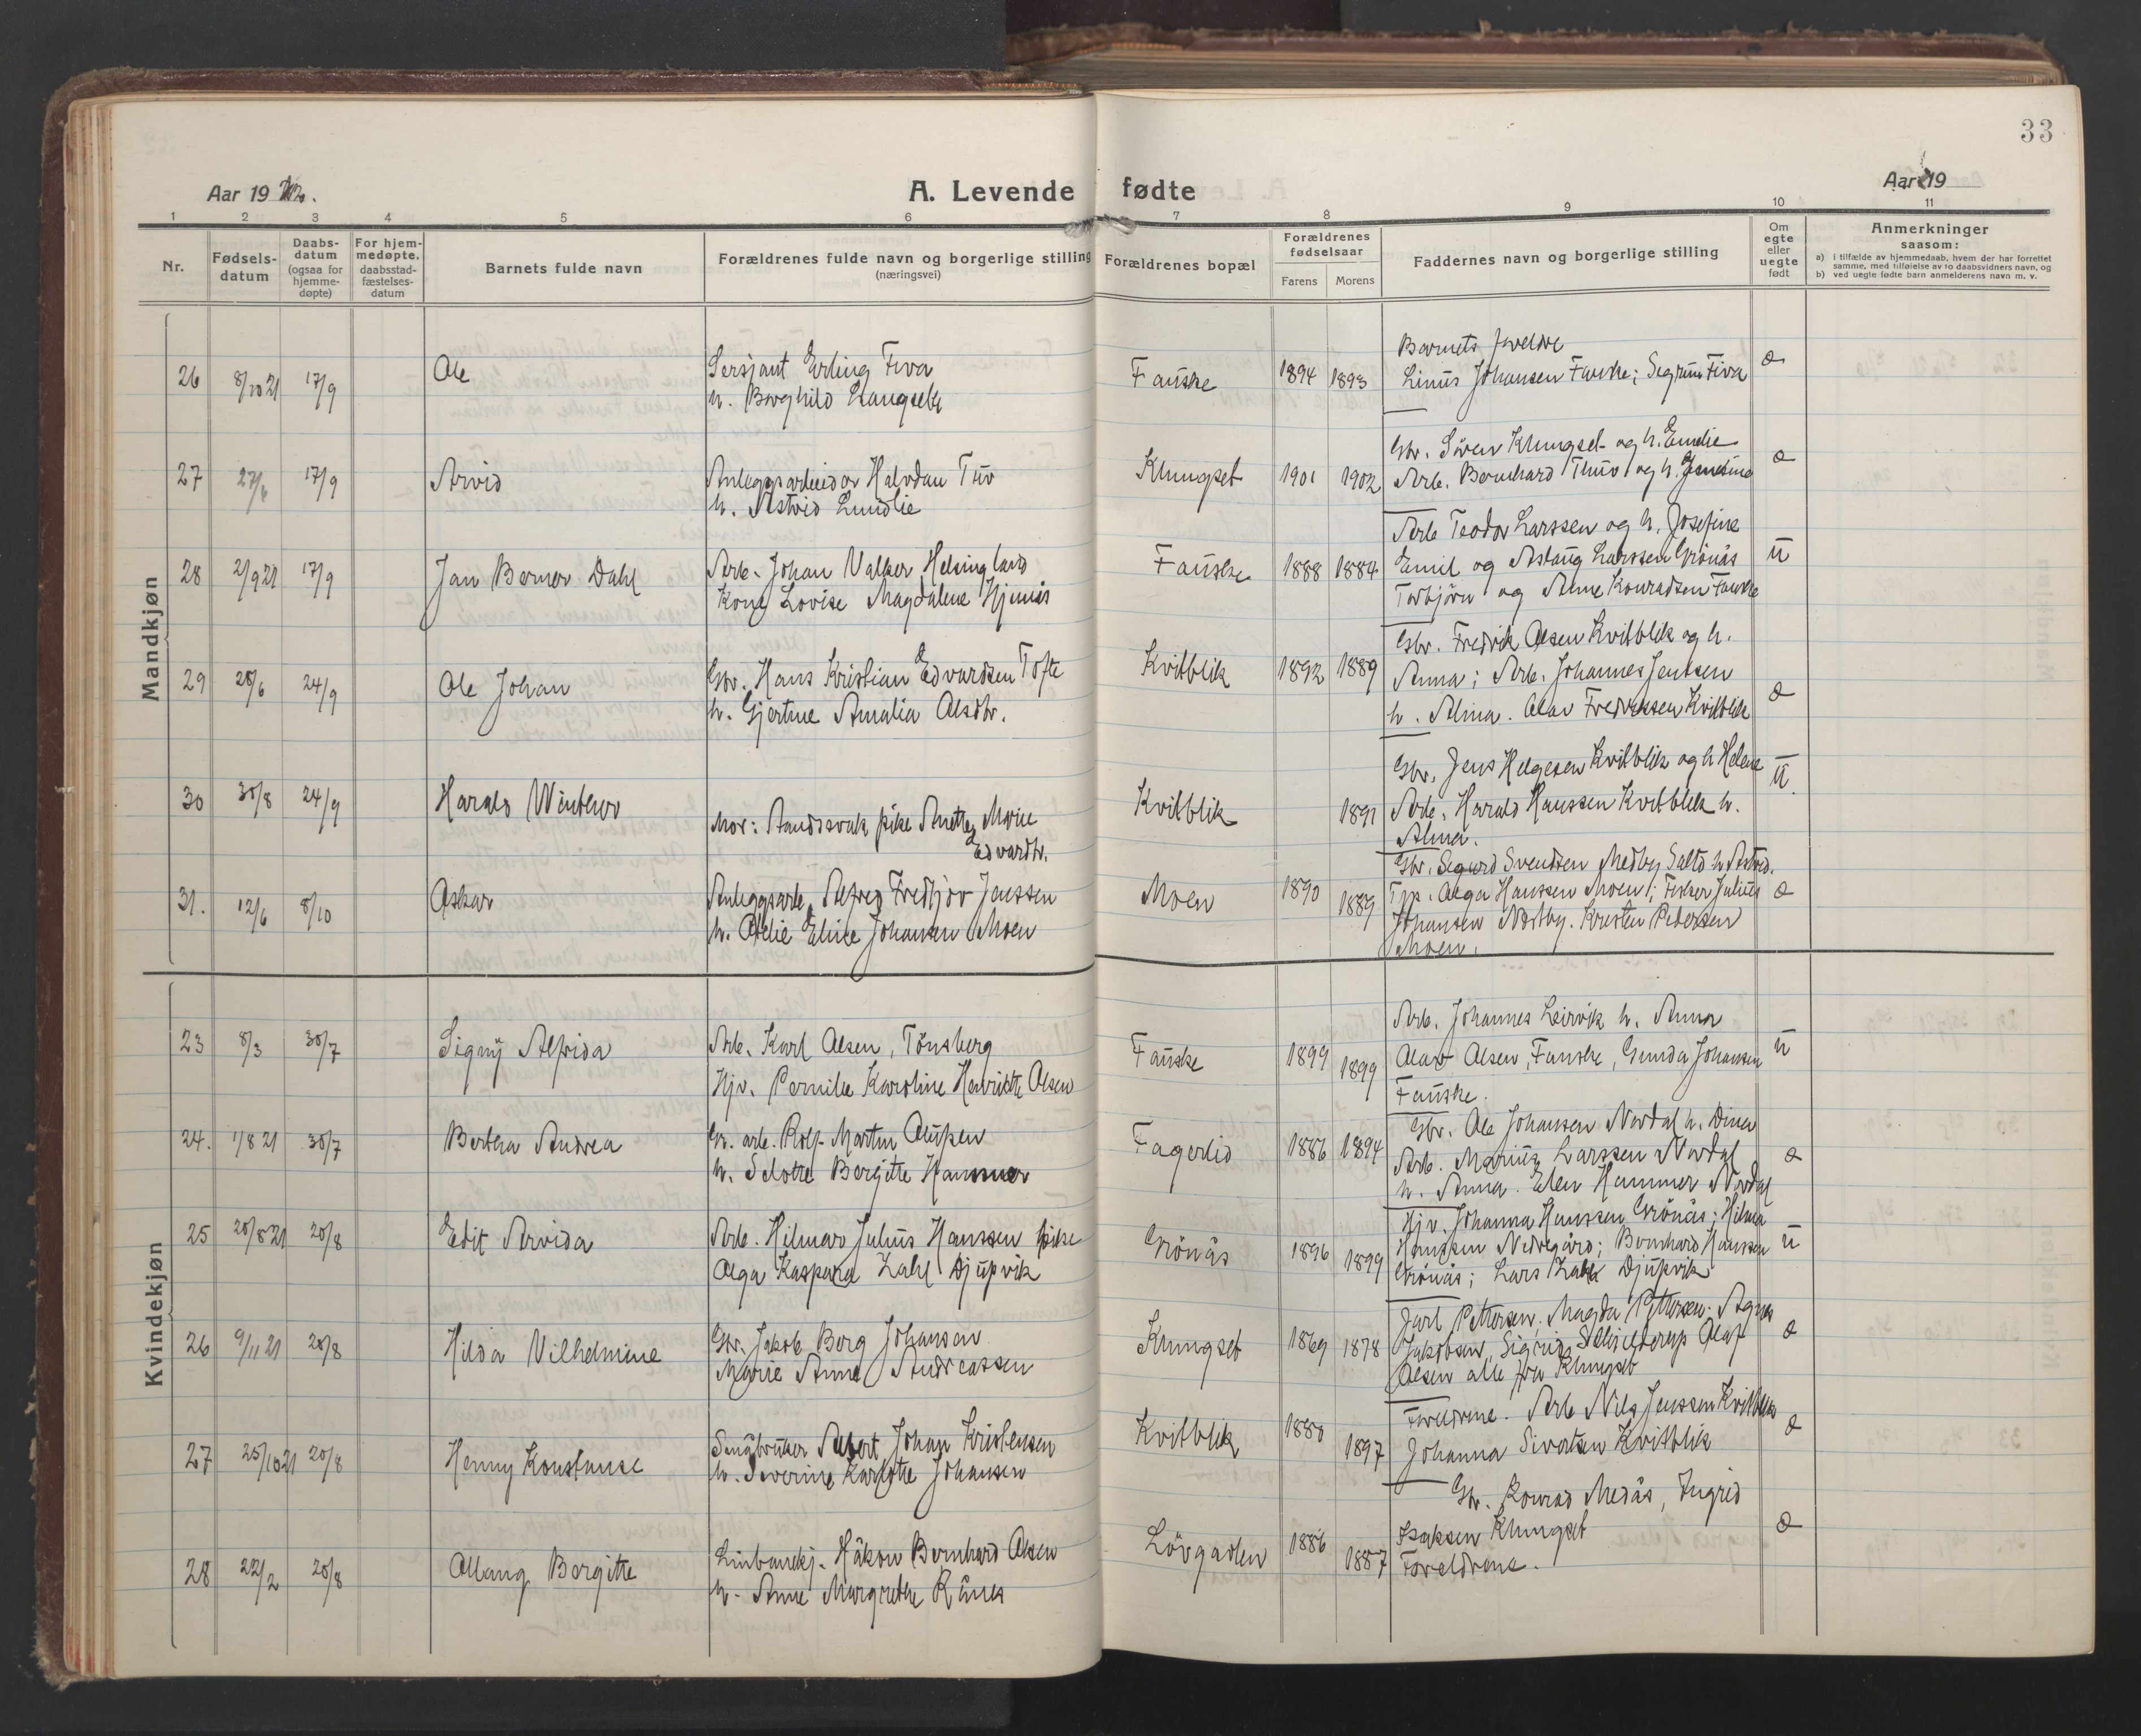 33
Aar 19 22.
A. Levende fødte
Aar 19
1 2 3 4 5 6 7 8 9 10 11
Nr.
Fødsels-
datum
Daabs-
datum
(ogsaa for
hjemme-
døpte)
For hjem-
medøpte.
daabsstad-
fæstelses-
datum
Barnets fulde navn
Forældrenes fulde navn og borgerlige stilling
(næringsvei)
Forældrenes bopæl
Forældrenes
fødselsaar
Farens Morens
Faddernes navn og borgerlige stilling
Om
egte
eller
uegte
født
Anmerkninger
saasom:
a) i tilfælde av hjemmedaab, hvem der har forrettet
samme, med tilføielse av to daabsvidners navn, og
b) ved uegte fødte barn anmelderens navn m. v.
Mandkjøn
26 8/10 21 17/9 Ole
Sersjant Erling Fiva
h. Borghild
Fauske 1894 1893
Barnets
Linus Johansen Fauske; Sigrun Fiva
27 27/6 17/9 Arvid
Anleggsarbeider Halvdan Tuv
h. Astrid Lundlie
Klungset 1901 1902
Gbr. Sören Klungset og h. Emelie
Arb. Bernhard Thuv og h. Jensine
28 2/9 21 17/9 Jan Berner Dahl
Arb. Johan Valker Helsingland
Kone Lovise Magdalene
Fauske 1888 1884 u
Arb Teodor Larssen og h. Josefine
Emil og Aslaug Larssen Grönås
Torbjörn og Anne Konradsen Fauske
29 28/6 24/9 Ole Johan
Gbr. Hans Kristian Edvardsen Tofte
h. Gjertine Amalia Olsdtr.
Kvitblik 1892 1889
Gbr. Fredrik Olsen Kvitblik og h.
Anna; Arb. Johannes Jentsen
h. Alma. Olav Fredriksen Kvitblik
30 30/8 24/9 Harald Winther
Mor: Aandssvak pike Anette Marie
Edvardtr.
Kvitblik 1891 u.
Gbr. Jens Helgesen Kvitblik og h Helene
Arb. Harald Hanssen Kvitblik h.
Alma.
31. 12/6 8/10 Oskar
Anleggsarb. Alfred Fredtjov Jenssen
h. Otelie Eline Johansen Moen
Moen 1890 1889
Gbr. Sigurd Svendsen Medby Salto h. Astrid.
Tjp. Olga Hanssen Moen; Fisker Julius
Johansen Nordby. Kristen Pedersen
Moen.
Kvindekjøn
23 8/3 30/7 Signy Alfrida
Arb. Karl Olsen, Tönsberg
Hjv. Pernille Karoline Henriette Olsen
Fauske 1899 1899 u
Arb. Johannes Leirvik h. Anna
Olav Olsen, Fauske, Gunda Johansen
Fauske.
24. 1/8 21 30/7 Bertha Andrea
Gr. arb. Rolf Martin Olufsen
h. Bergitte Hammer
Fagerlid 1886 1894
Gbr. Ole Johansen Nordal h. Dina
Arb. Marius Larssen Nordal
h. Anna. Elen Hammer Nordal
25 20/8 21 20/8 Edit Arvida
Arb. Hilmar Julius Hanssen pike
Olga Kaspara Zahl Djupvik
Grönås 1896 1899 u
Hjv. Johanna Hanssen Grönås; Hilma
Hanssen Nedregård; Bernhard Hanssen
Grönås; Lars Zahl Djupvik
26 9/11 21 20/8 Hilda Vilhelmine
Gbr. Jakob Borg Johansen
Marie Anna Andreassen
Klungset 1869 1878
Jarl Pettersen, Magda Pettersen; Agnes
Jakobsen, Sigrid Olaf
Olsen alle fra Klungset
27 25/10 21 20/8 Henny Konstanse
Småbruker Albert Johan Kristensen
h. Severine Karlotte Johansen
Kvitblik 1880 1897
Foreldrene. Arb Nils Jenssen Kvitblik
Johanna Sivertsen Kvitblik
28 22/2 20/8 Ollaug Bergitte
Håkon Bernhard Olsen
h. Anne Margrethe Rånes
Lövgavlen 1886 1887
Gbr. Konrad Medås, Ingrid
Isaksen Klungset
Foreldrene.